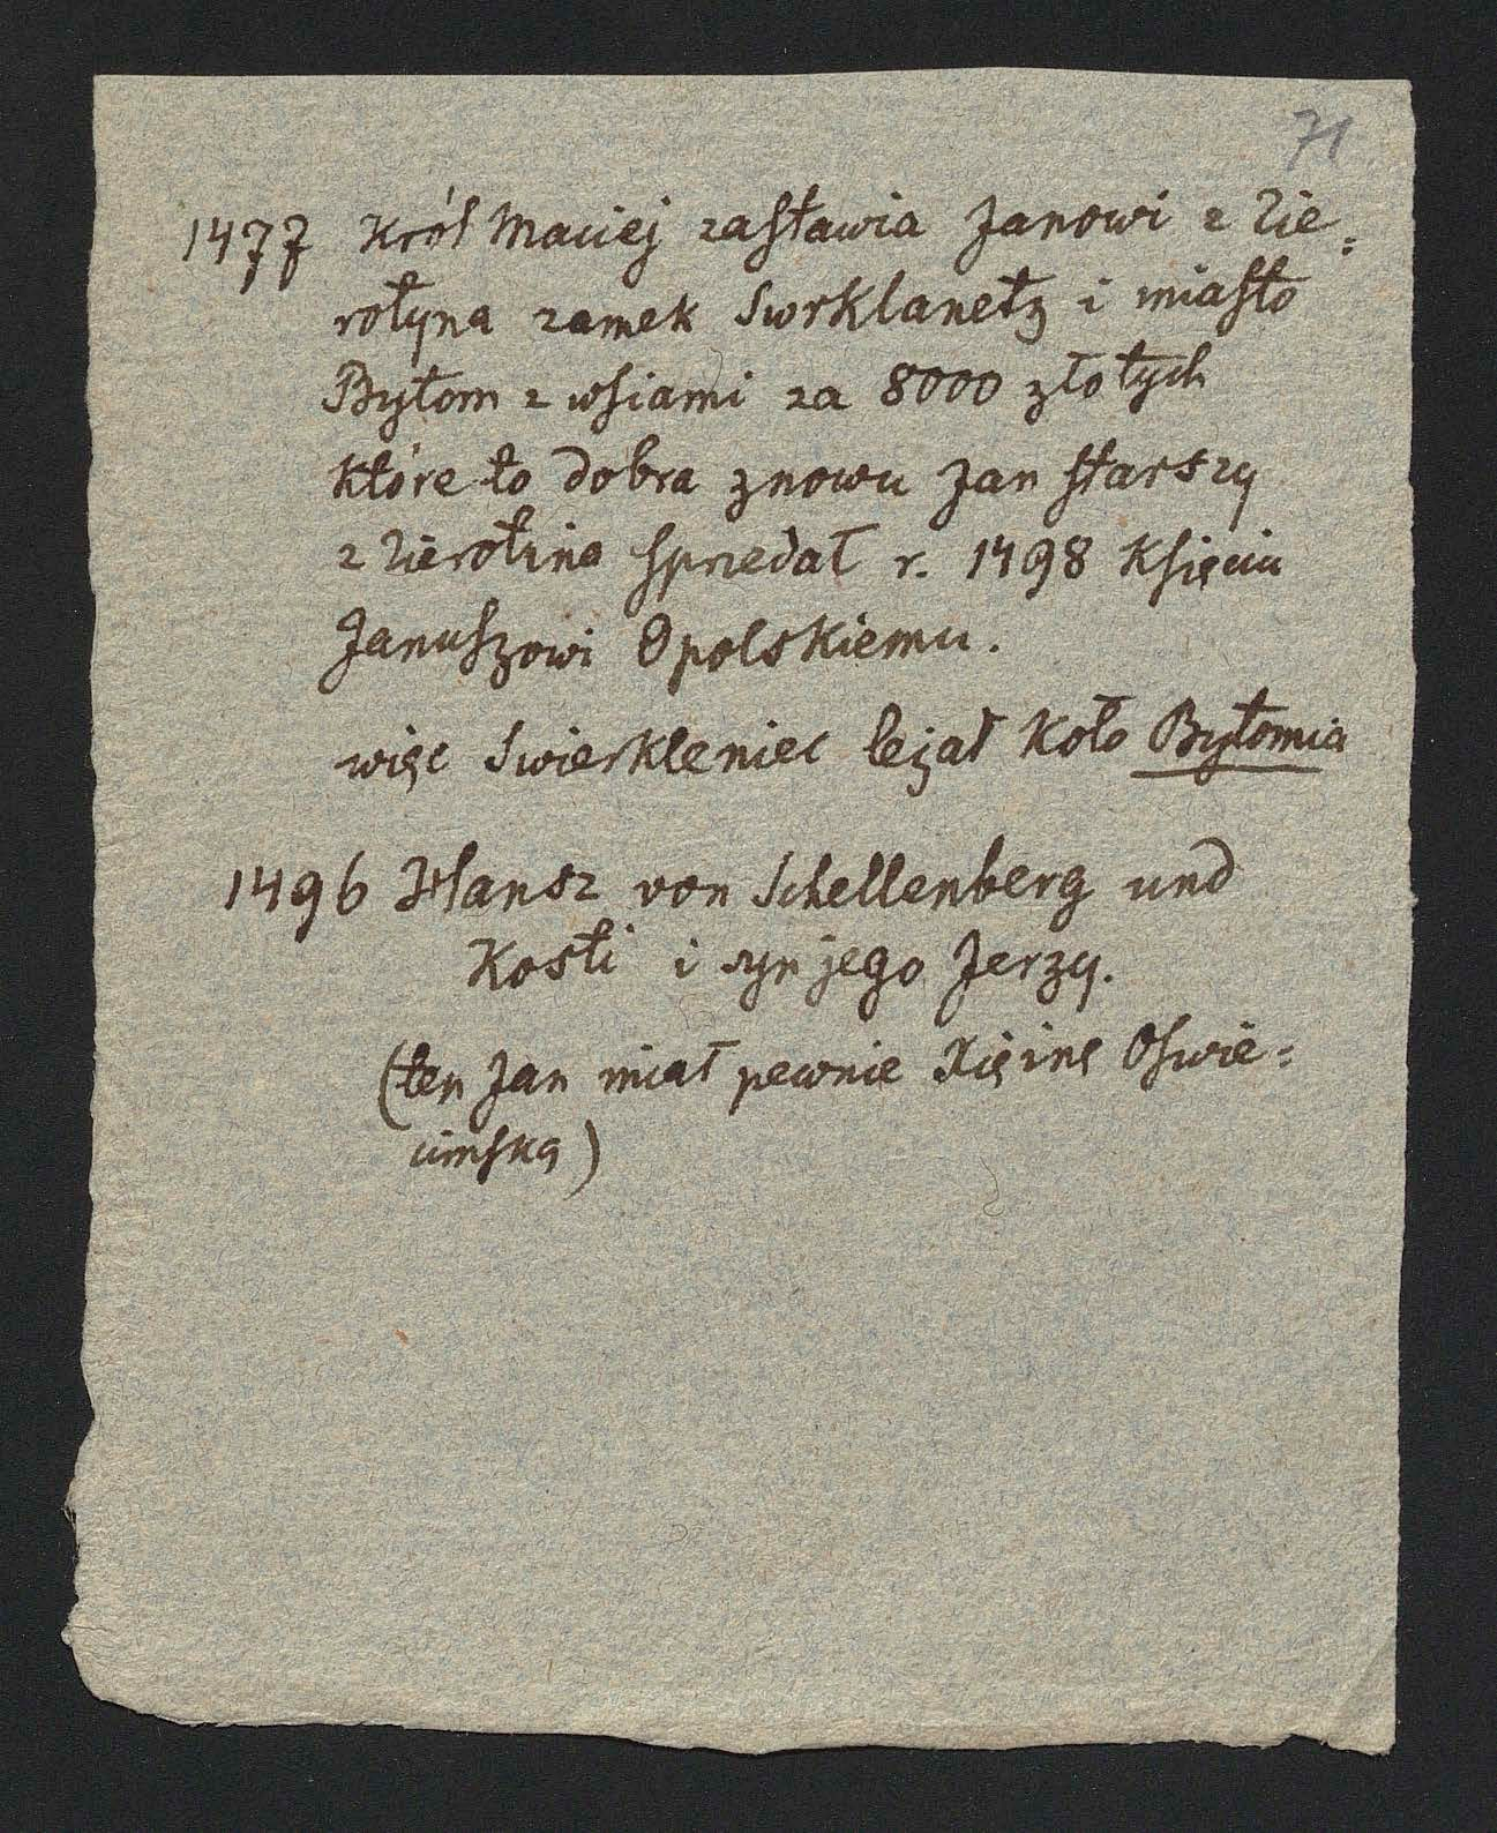 71
1477 Król Maciej zastawia Janowi z Zie=
rotyna zamek Swrklanetz i miasto
Bytom z wsiami za 8000 złotych
które to dobra znowu Jan starszy
z Zierotina sprzedał r. 1498 Księciu
Januszowi Opolskiemu.
więc Swierkleniec leżał koło Bytomia
1496 Hansz von Schellenberg und
Kosti i syn jego Jerzy.
(ten Jan miał pewnie Xiężnę Oswie=
cimską)